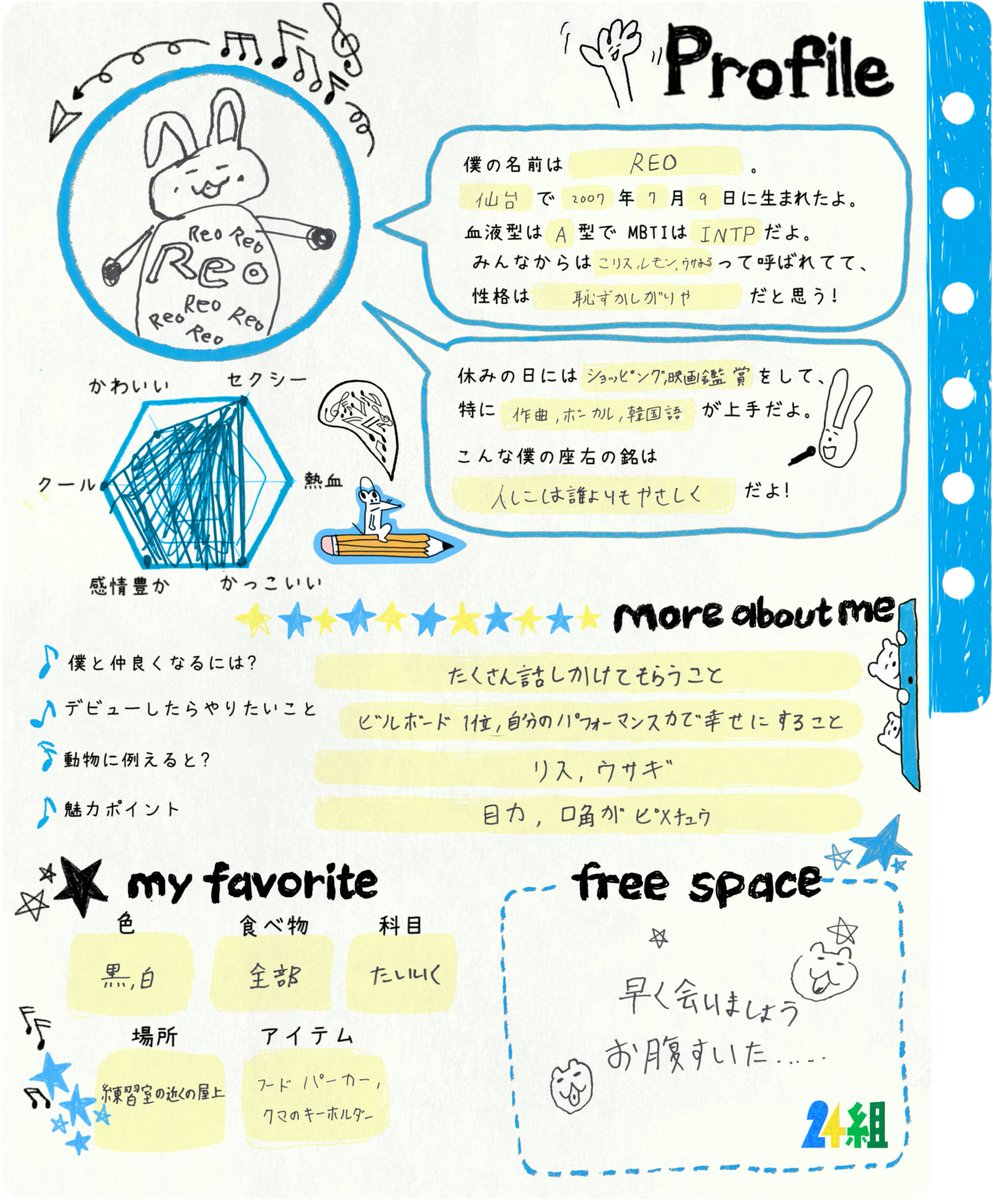 Profile
Reo Reo
Reo
Reo Reo
Reo Reo
僕の名前は REO 。
仙台 で 2007 年 7 月 9 日に生まれたよ。
血液型は A 型で MBTIは INTP だよ。
みんなからは こリス,レモン,ウサまる って呼ばれてて、
性格は 恥ずかしがりや だと思う!
休みの日には ショッピング,映画鑑賞 をして、
特に 作曲,ボーカル,韓国語 が上手だよ。
こんな僕の座右の銘は
人には誰よりもやさしく だよ!
かわいい セクシー
クール 熱血
感情豊か かっこいい
more about me
僕と仲良くなるには? たくさん話しかけてもらうこと
デビューしたらやりたいこと ビルボード 1位,自分のパフォーマンス力で幸せにすること
動物に例えると? リス,ウサギ
魅力ポイント 目力,口角がピメチュウ
my favorite
色 食べ物 科目
黒,白 全部 たいいく
場所 アイテム
練習室の近くの屋上
フードパーカー,
クマのキーホルダー
free space
早く会いましょう
お腹すいた......
24組